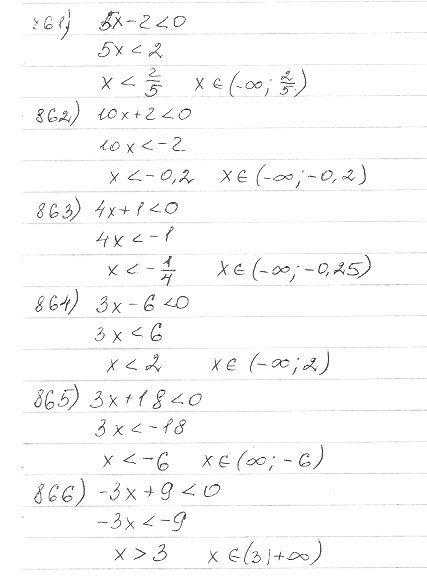 861) 5x-2<0
5x<2
x<2/5 x∈(-∞; 2/5)
862) 10x+2<0
10x<-2
x<-0,2 x∈(-∞;-0,2)
863) 4x+1<0
4x<-1
x<-1/4 x∈(-∞;-0,25)
864) 3x-6<0
3x<6
x<2 x∈(-∞;2)
865) 3x+18<0
3x<-18
x<-6 x∈(∞;-6)
866) -3x+9<0
-3x<-9
x>3 x∈(3;+∞)